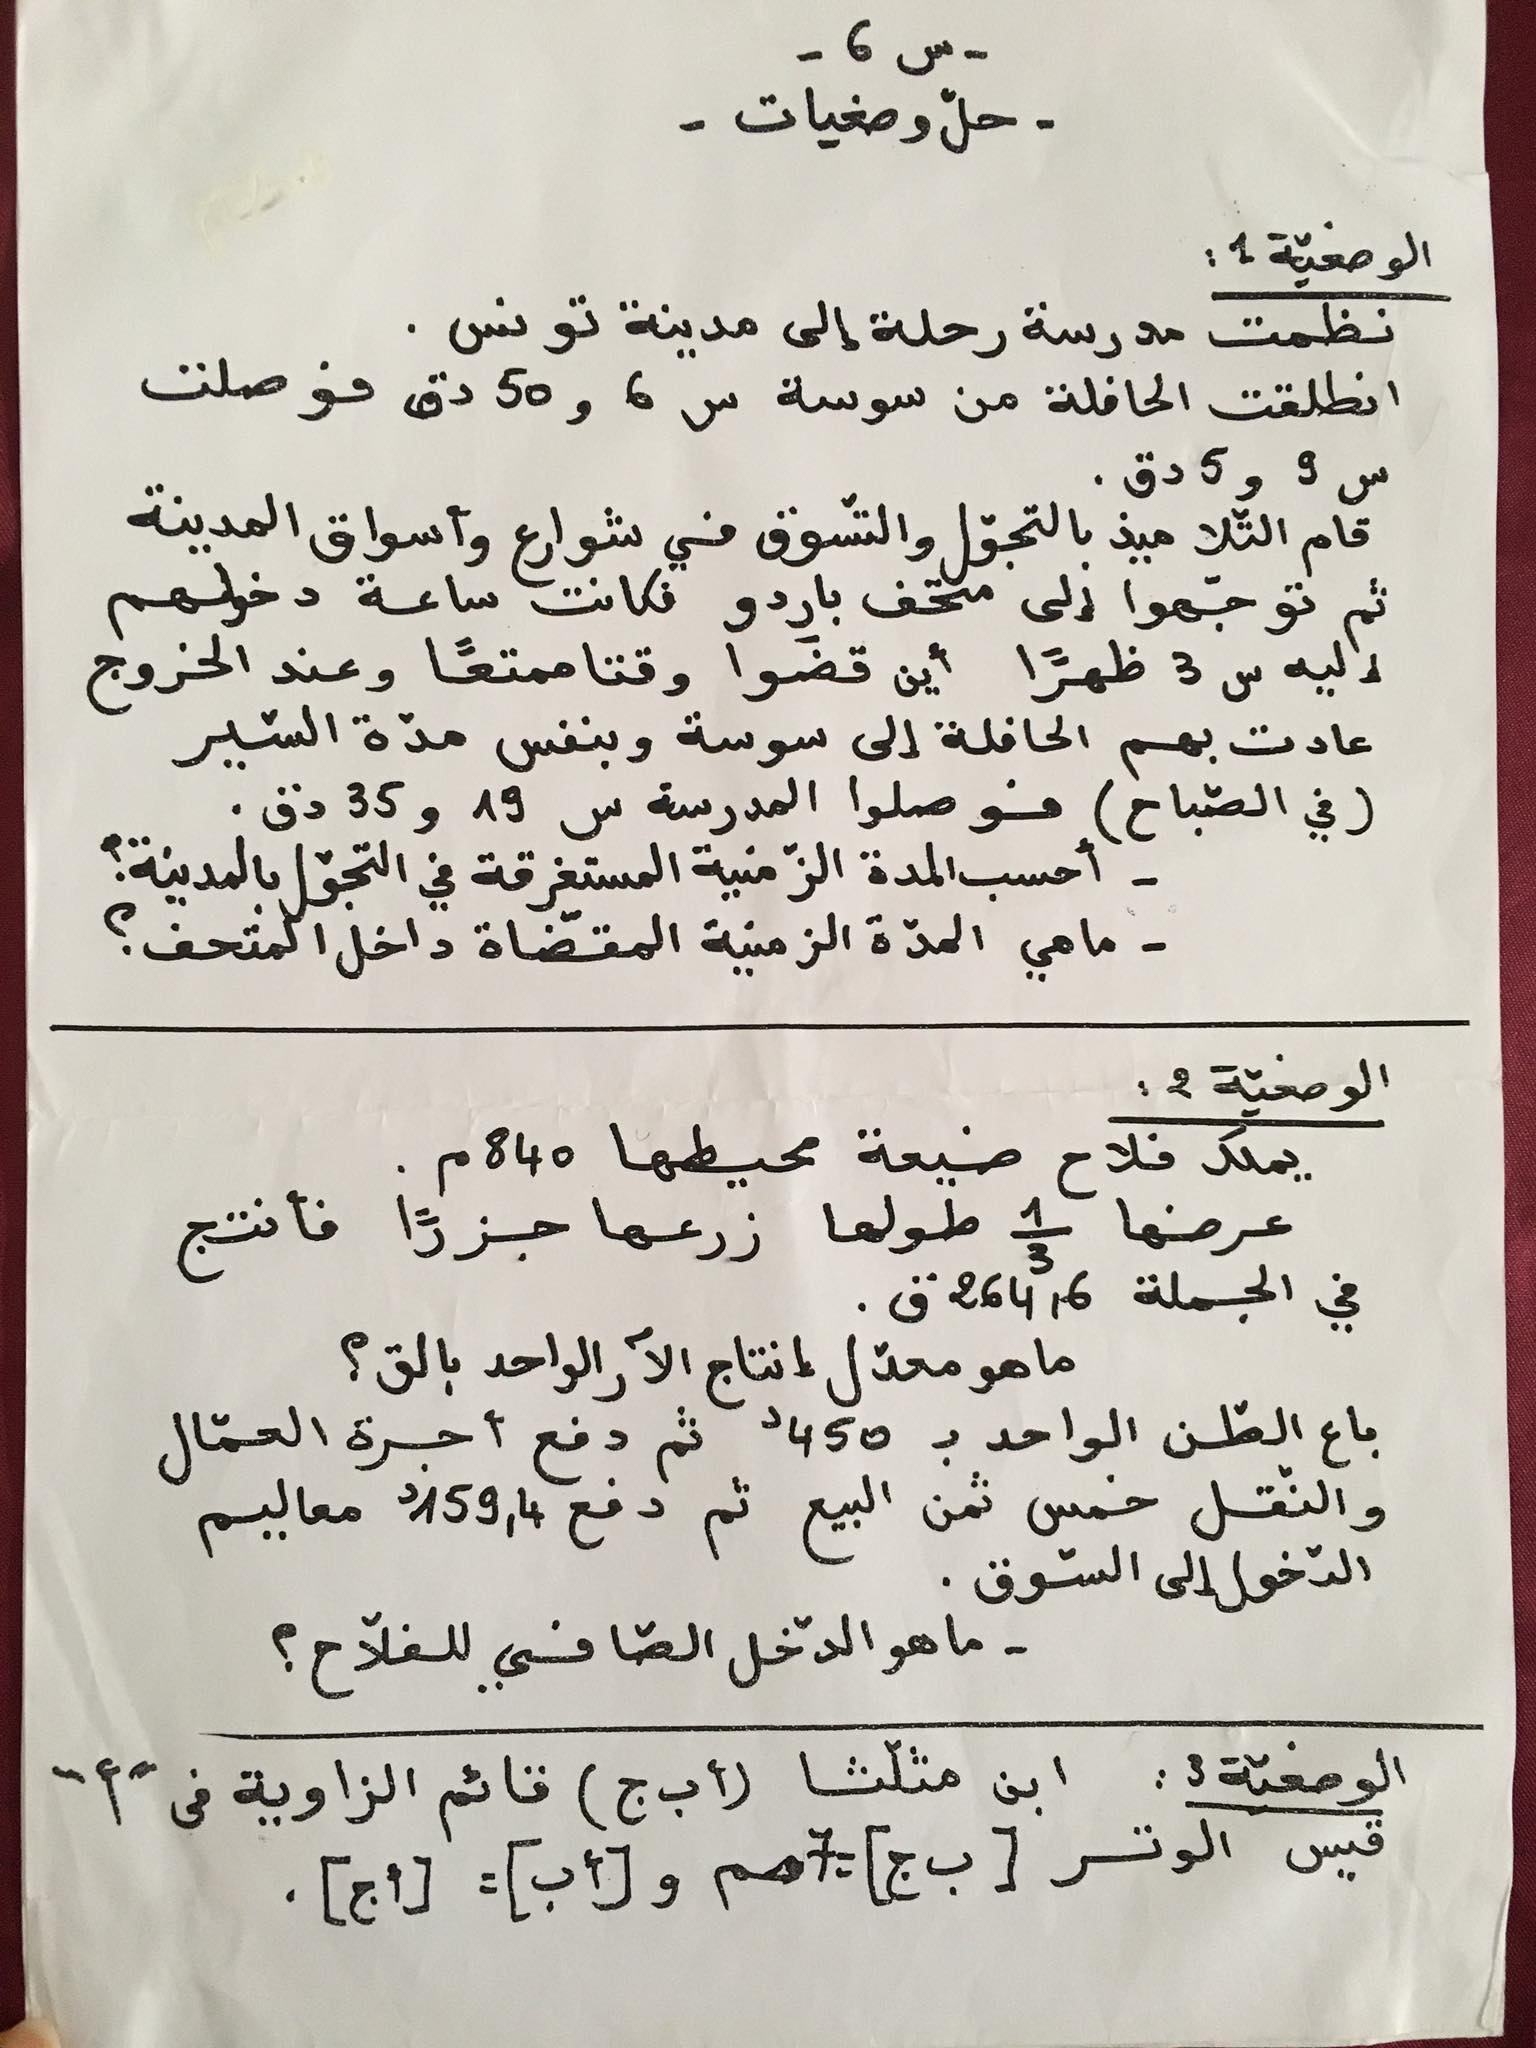 - س 6 -
- حلّ وضعيات -
الوضعيّة 1 :
نظمت مدرسة رحلة إلى مدينة تونس .
انطلقت الحافلة من سوسة س 6 و 50 دق فوصلت
س 9 و 5 دق .
قام التّلاميذ بالتجوّل والتّسوّق في شوارع وأسواق المدينة
ثم توجّهوا إلى متحف باردو فكانت ساعة دخولهم
إليه س 3 ظهرًا أين قضَوا وقتا ممتعًا وعند الخروج
عادت بهم الحافلة إلى سوسة وبنفس مدّة السّير
(في الصّباح) فوصلوا المدرسة س 19 و 35 دق .
- أحسب المدة الزّمنية المستغرقة في التجوّل بالمدينة؟
- ماهي المدّة الزمنية المقضّاة داخل المتحف؟
الوضعيّة 2 :
يملك فلاح ضيعة محيطها 840م .
عرضها 1/3 طولها زرعها جزرًا فأنتج
في الجملة 264,6 ق .
ماهو معدّل إنتاج الآر الواحد بالق؟
باع الطّن الواحد بـ 450د ثم دفع أجرة العمّال
والنّقل خمس ثمن البيع ثم دفع 159,4د معاليم
الدّخول إلى السّوق .
- ماهو الدّخل الصّافي للفلاّح؟
الوضعيّة 3 : ابن مثلّثا (أ ب ج) قائم الزاوية في "أ"
قيس الوتر [ب ج]=7صم و [أب]= [أج] .